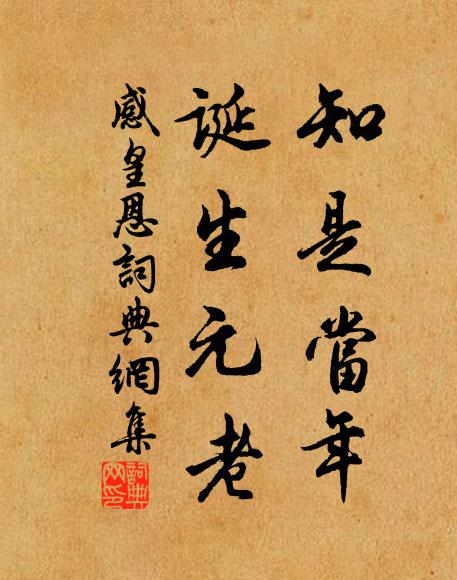 知是當年
誕生元老
感皇恩詞典網集
詞典網印